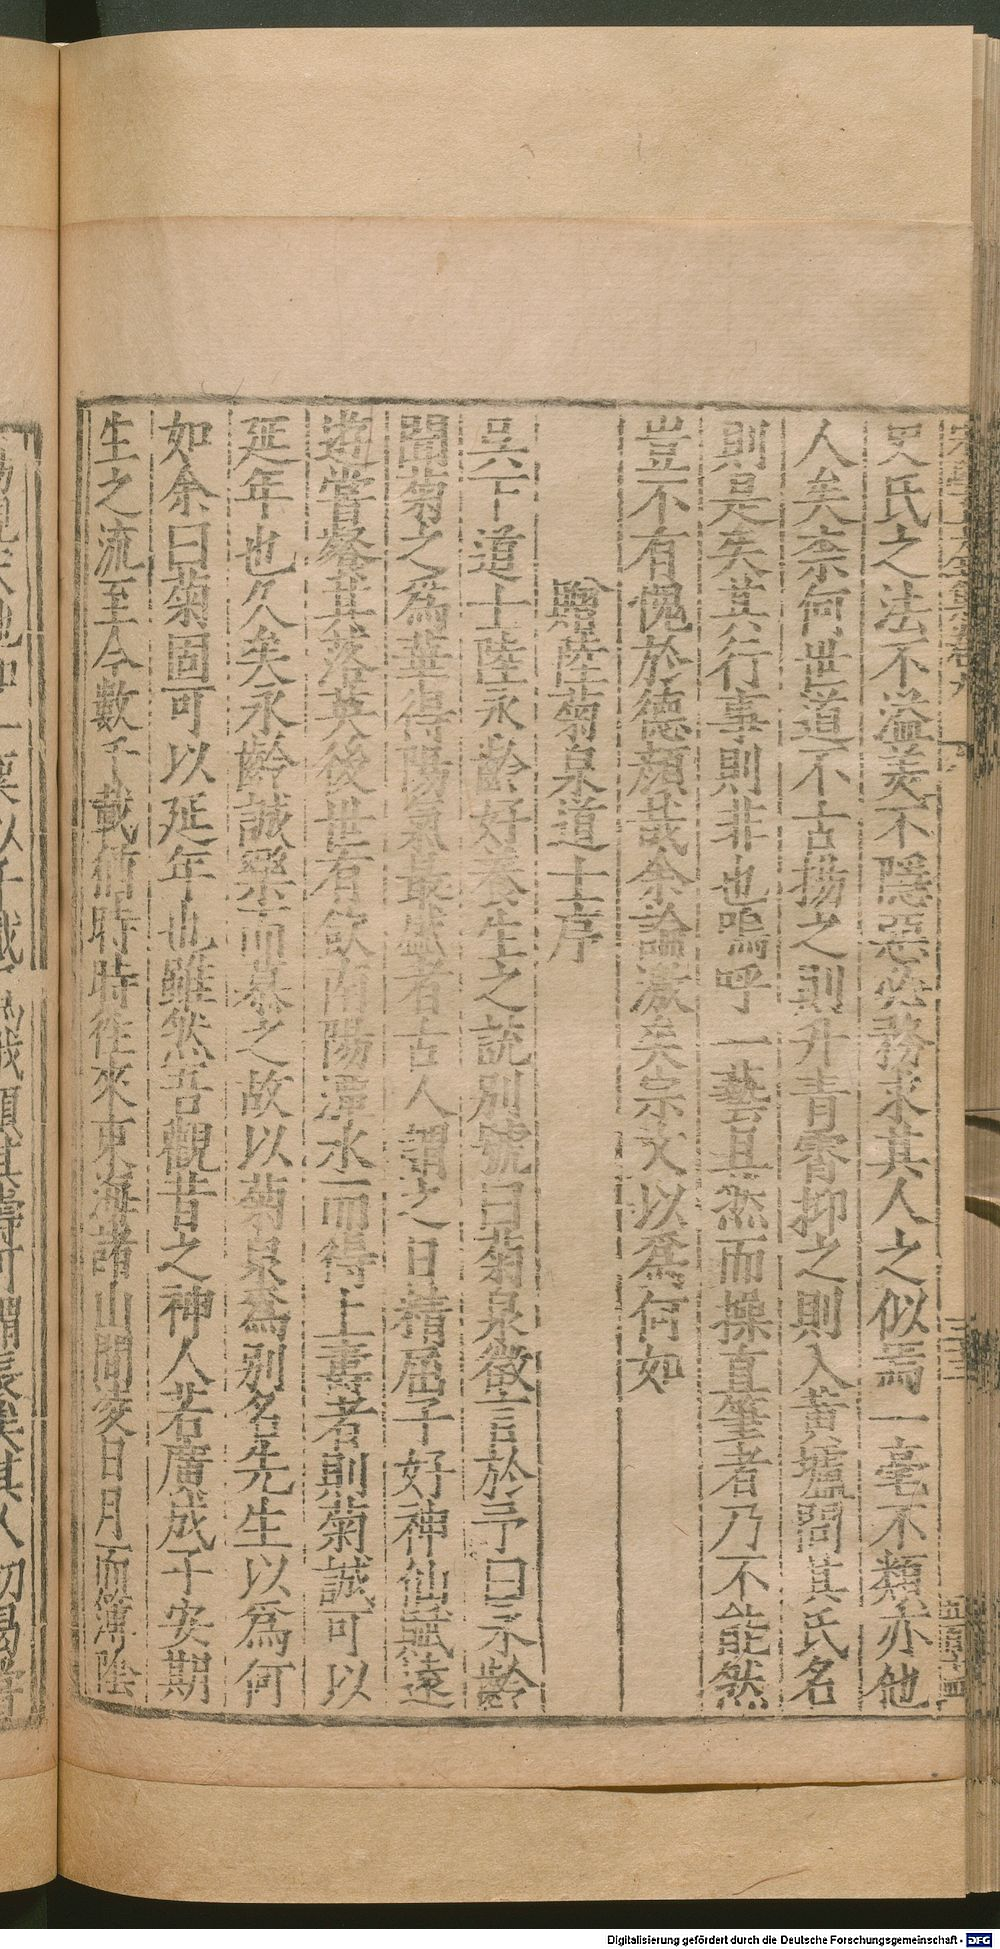 史氏之法不溢美不隱惡必務求其人之似焉一毫不類亦他
人矣柰何世道不古揚之則升青霄抑之則入黃壚問其氏名
則是矣其行事則非也嗚呼一藝且然而操直筆者乃不能然
豈不有愧於德顔哉余論激矣宗文以爲何如
贈陸菊泉道士序
吳下道士陸永齡好養生之説別號曰菊泉徵言於予曰永齡
聞菊之爲華得陽氣最盛者古人謂之日精屈子好神仙賦遠
遊嘗餐其落英後世有飲南陽潭水而得上壽者則菊誠可以
延年也久矣永齡誠樂而慕之故以菊泉爲別名先生以爲何
如余曰菊固可以延年也雖然吾觀昔之神人若廣成子安期
生之流至今數千載猶時時往來東海諸山間凌日月而薄陰
Digitalisierung gefördert durch die Deutsche Forschungsgemeinschaft - DFG